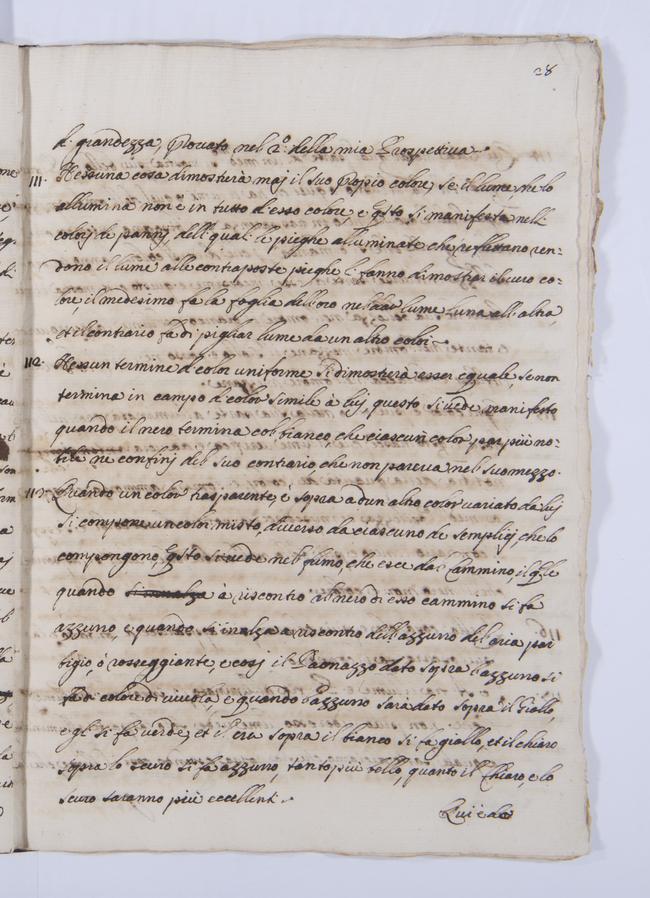 28
di grandezza, Provato nel 2º. della mia Prospettiva.
111. Nessuna cosa dimosterà maj il suo Propio colore, se il lume che lo
allumina non è in tutto d'esso colore, e Qsto si manifesta nelli
colorj de pannj, dell quali le pieghe alluminate che reflettano ren-
dono il lume alle contraposte pieghe li fanno dimostrar il vero co-
lore, il medesimo fa la foglia dell'oro nel dar lume l'una all'altra,
et il contrario fa di pigliar lume da un altro color.
112. Nessun termine di color uniforme si dimosterà esser eguale, se non
termina in campo di color simile à luj, questo si vede manifesto
quando il nero termina col bianco, che ciascun color par più no-
bile ne confinj del suo contrario, che non pareva nel suo mezzo.
113. Quando un color trasparente, è sopra ad un altro color variato da luj
si compone un color misto, diverso da ciascuno de semplicj, che lo
compongono, Qsto si vede nel fumo, che esce dal Cammino, il qle
quando si innalza à riscontro al nero di esso cammino si fa
azzurro, e quando si inalza a riscontro dell'azzurro del aria par
bigio, ò rosseggiante, e così il Paonazzo dato sopra l'azzurro si
fa di colore di viuola, e quando l'azzurro sarà dato sopra il Giallo,
egli si fa verde, et il cru sopra il bianco si fa giallo, et il chiaro
sopra lo scuro si fa azzurro, tanto più bello, quanto il Chiaro, e lo
scuro saranno più eccellenti.
Qui è da